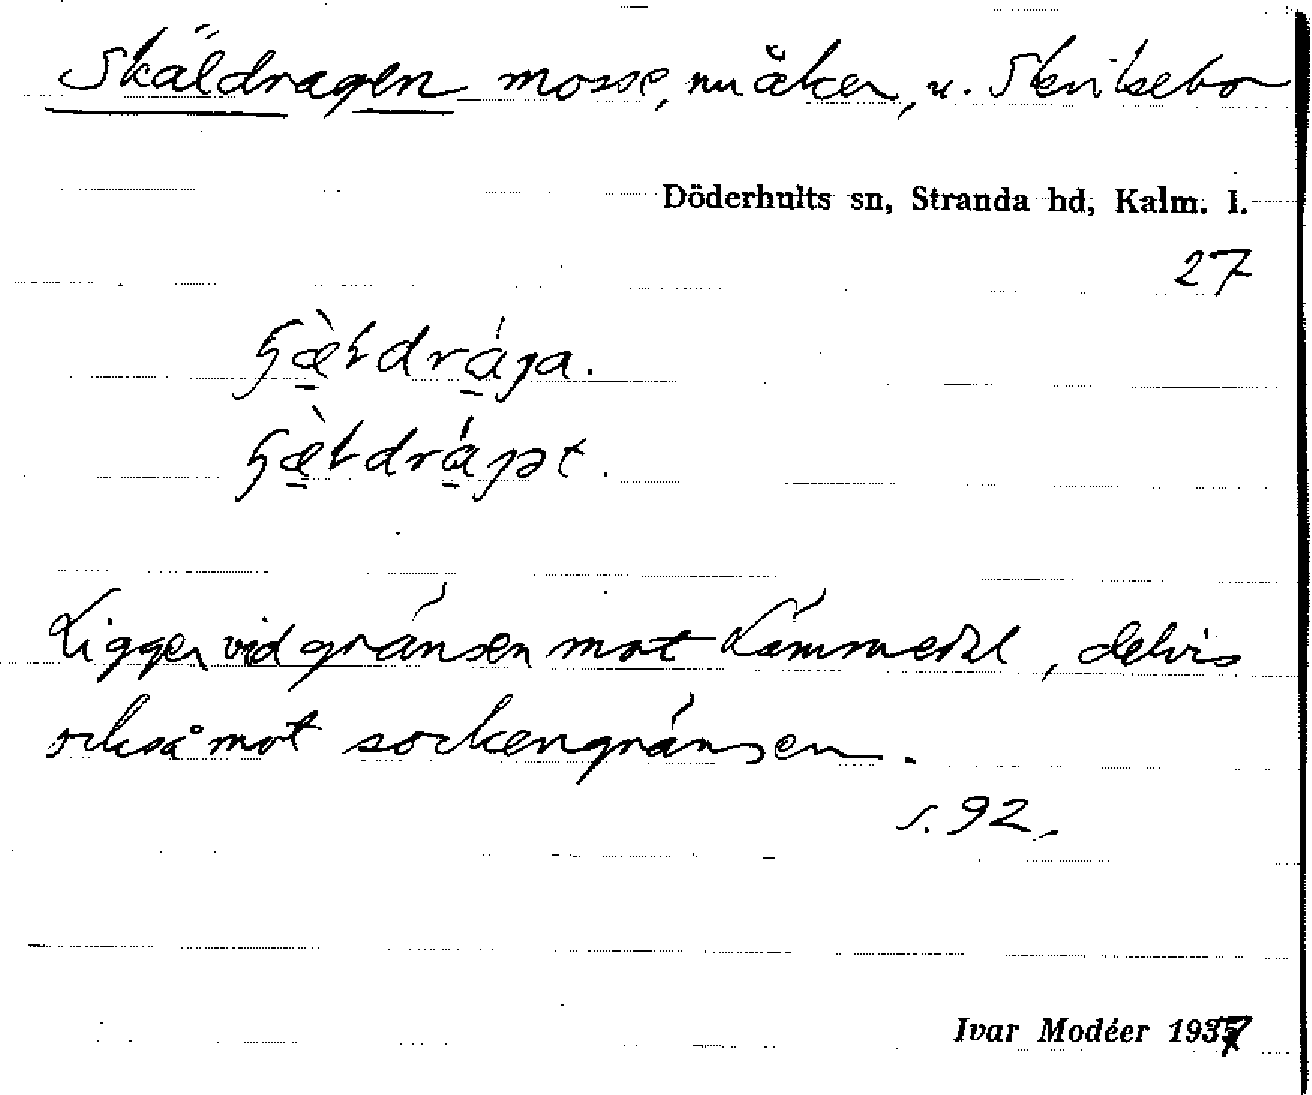 Skäldragen mosse, nu åker, u. Skrikebo
Döderhults sn, Stranda hd, Kalm. l.
27
Ligger vid gränsen mot Lämmedal, delvis
också mot sockengränsen.
s. 92.
Ivar Modéer 1937